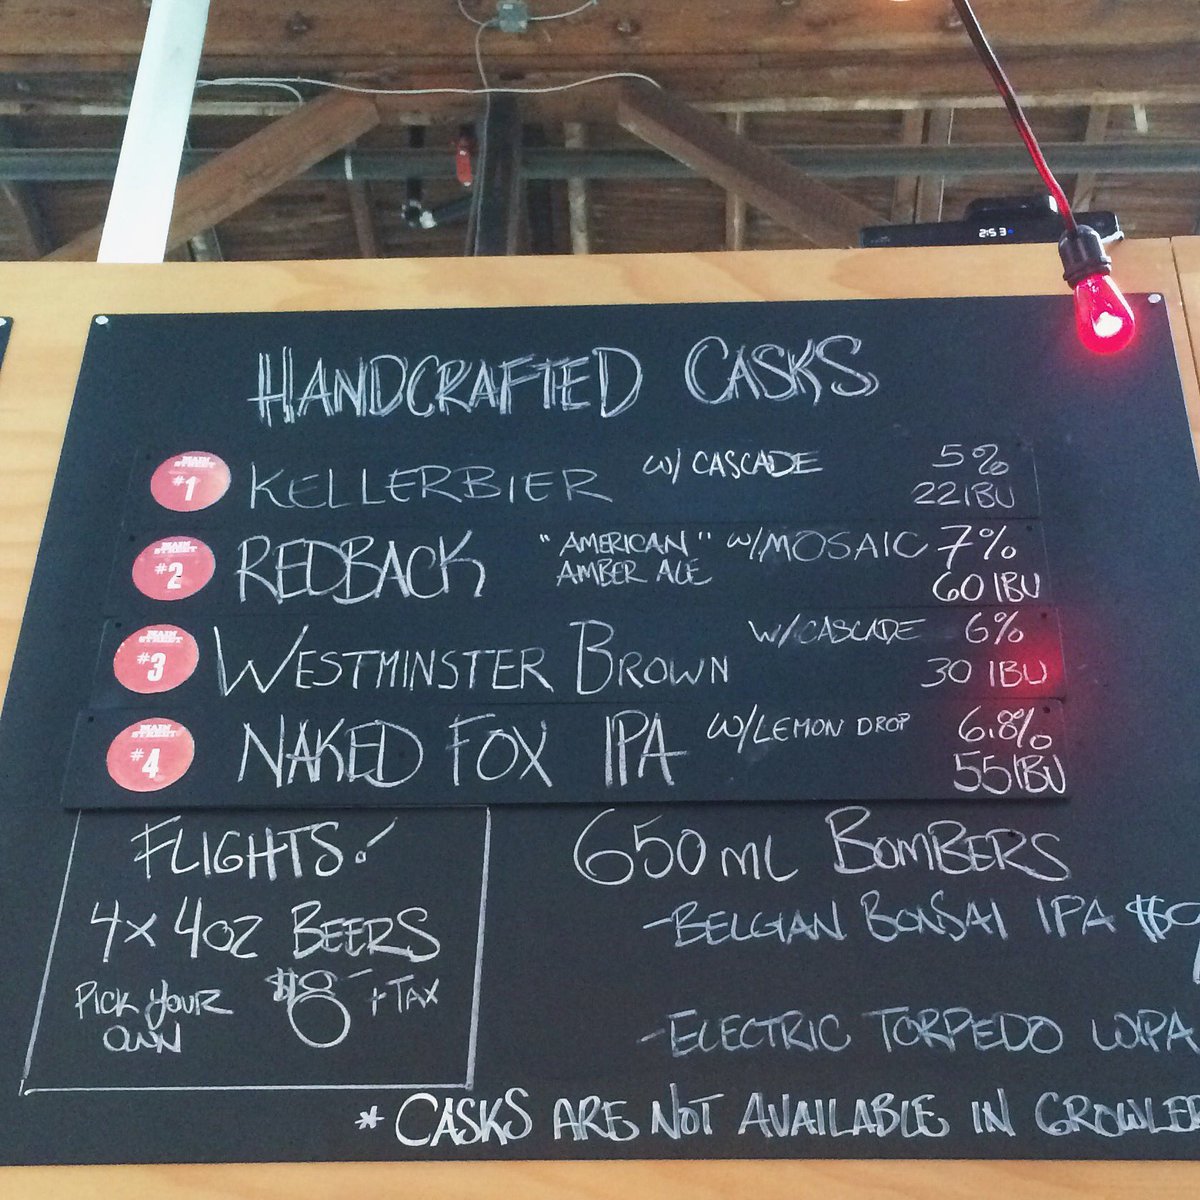 2:53
HANDCRAFTED CASKS
MAIN STREET #1 KELLERBIER w/ CASCADE 5%
22 IBU
MAIN STREET #2 REDBACK "AMERICAN" w/ MOSAIC 7%
AMBER ALE 60 IBU
MAIN STREET #3 WESTMINSTER BROWN w/ CASCADE 6%
30 IBU
MAIN STREET #4 NAKED FOX IPA w/ LEMON DROP 6.8%
55 IBU
FLIGHTS!
4x 4oz BEERS
PICK YOUR OWN $8 + TAX
650 ML BOMBERS
- BELGIAN BONSAI IPA
- ELECTRIC TORPEDO WIPA
* CASKS ARE NOT AVAILABLE IN GROWLE